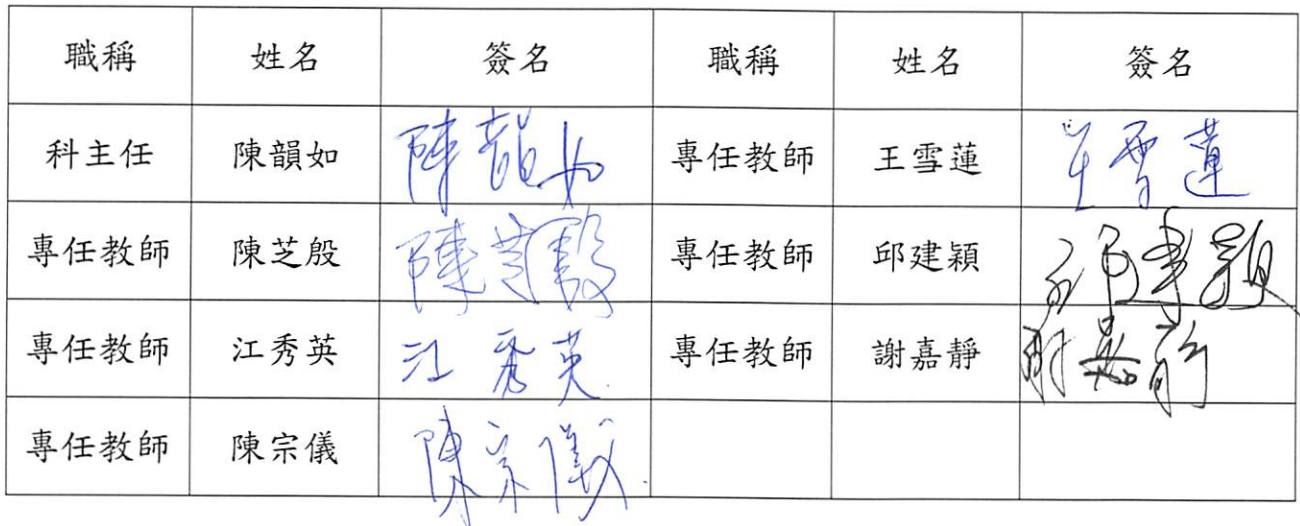 職稱 姓名 簽名 職稱 姓名 簽名
科主任 陳韻如 陳韻如 專任教師 王雪蓮 王雪蓮
專任教師 陳芝殷 陳芝殷 專任教師 邱建穎 邱建穎
專任教師 江秀英 江秀英 專任教師 謝嘉靜 謝嘉靜
專任教師 陳宗儀 陳宗儀